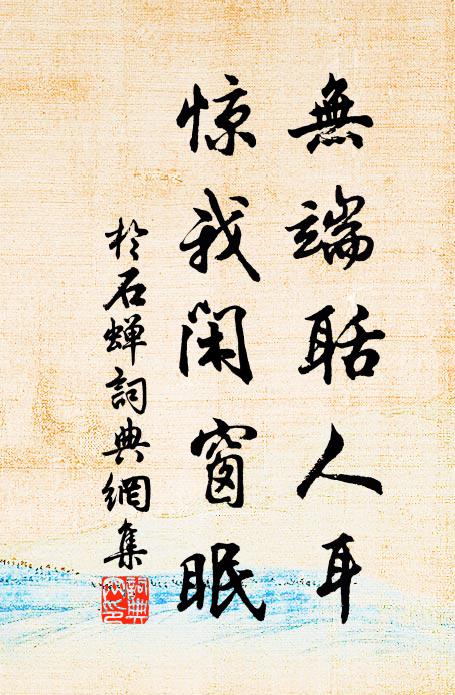 無端聒人耳
惊我閑窗眠
於石蟬詞典網集